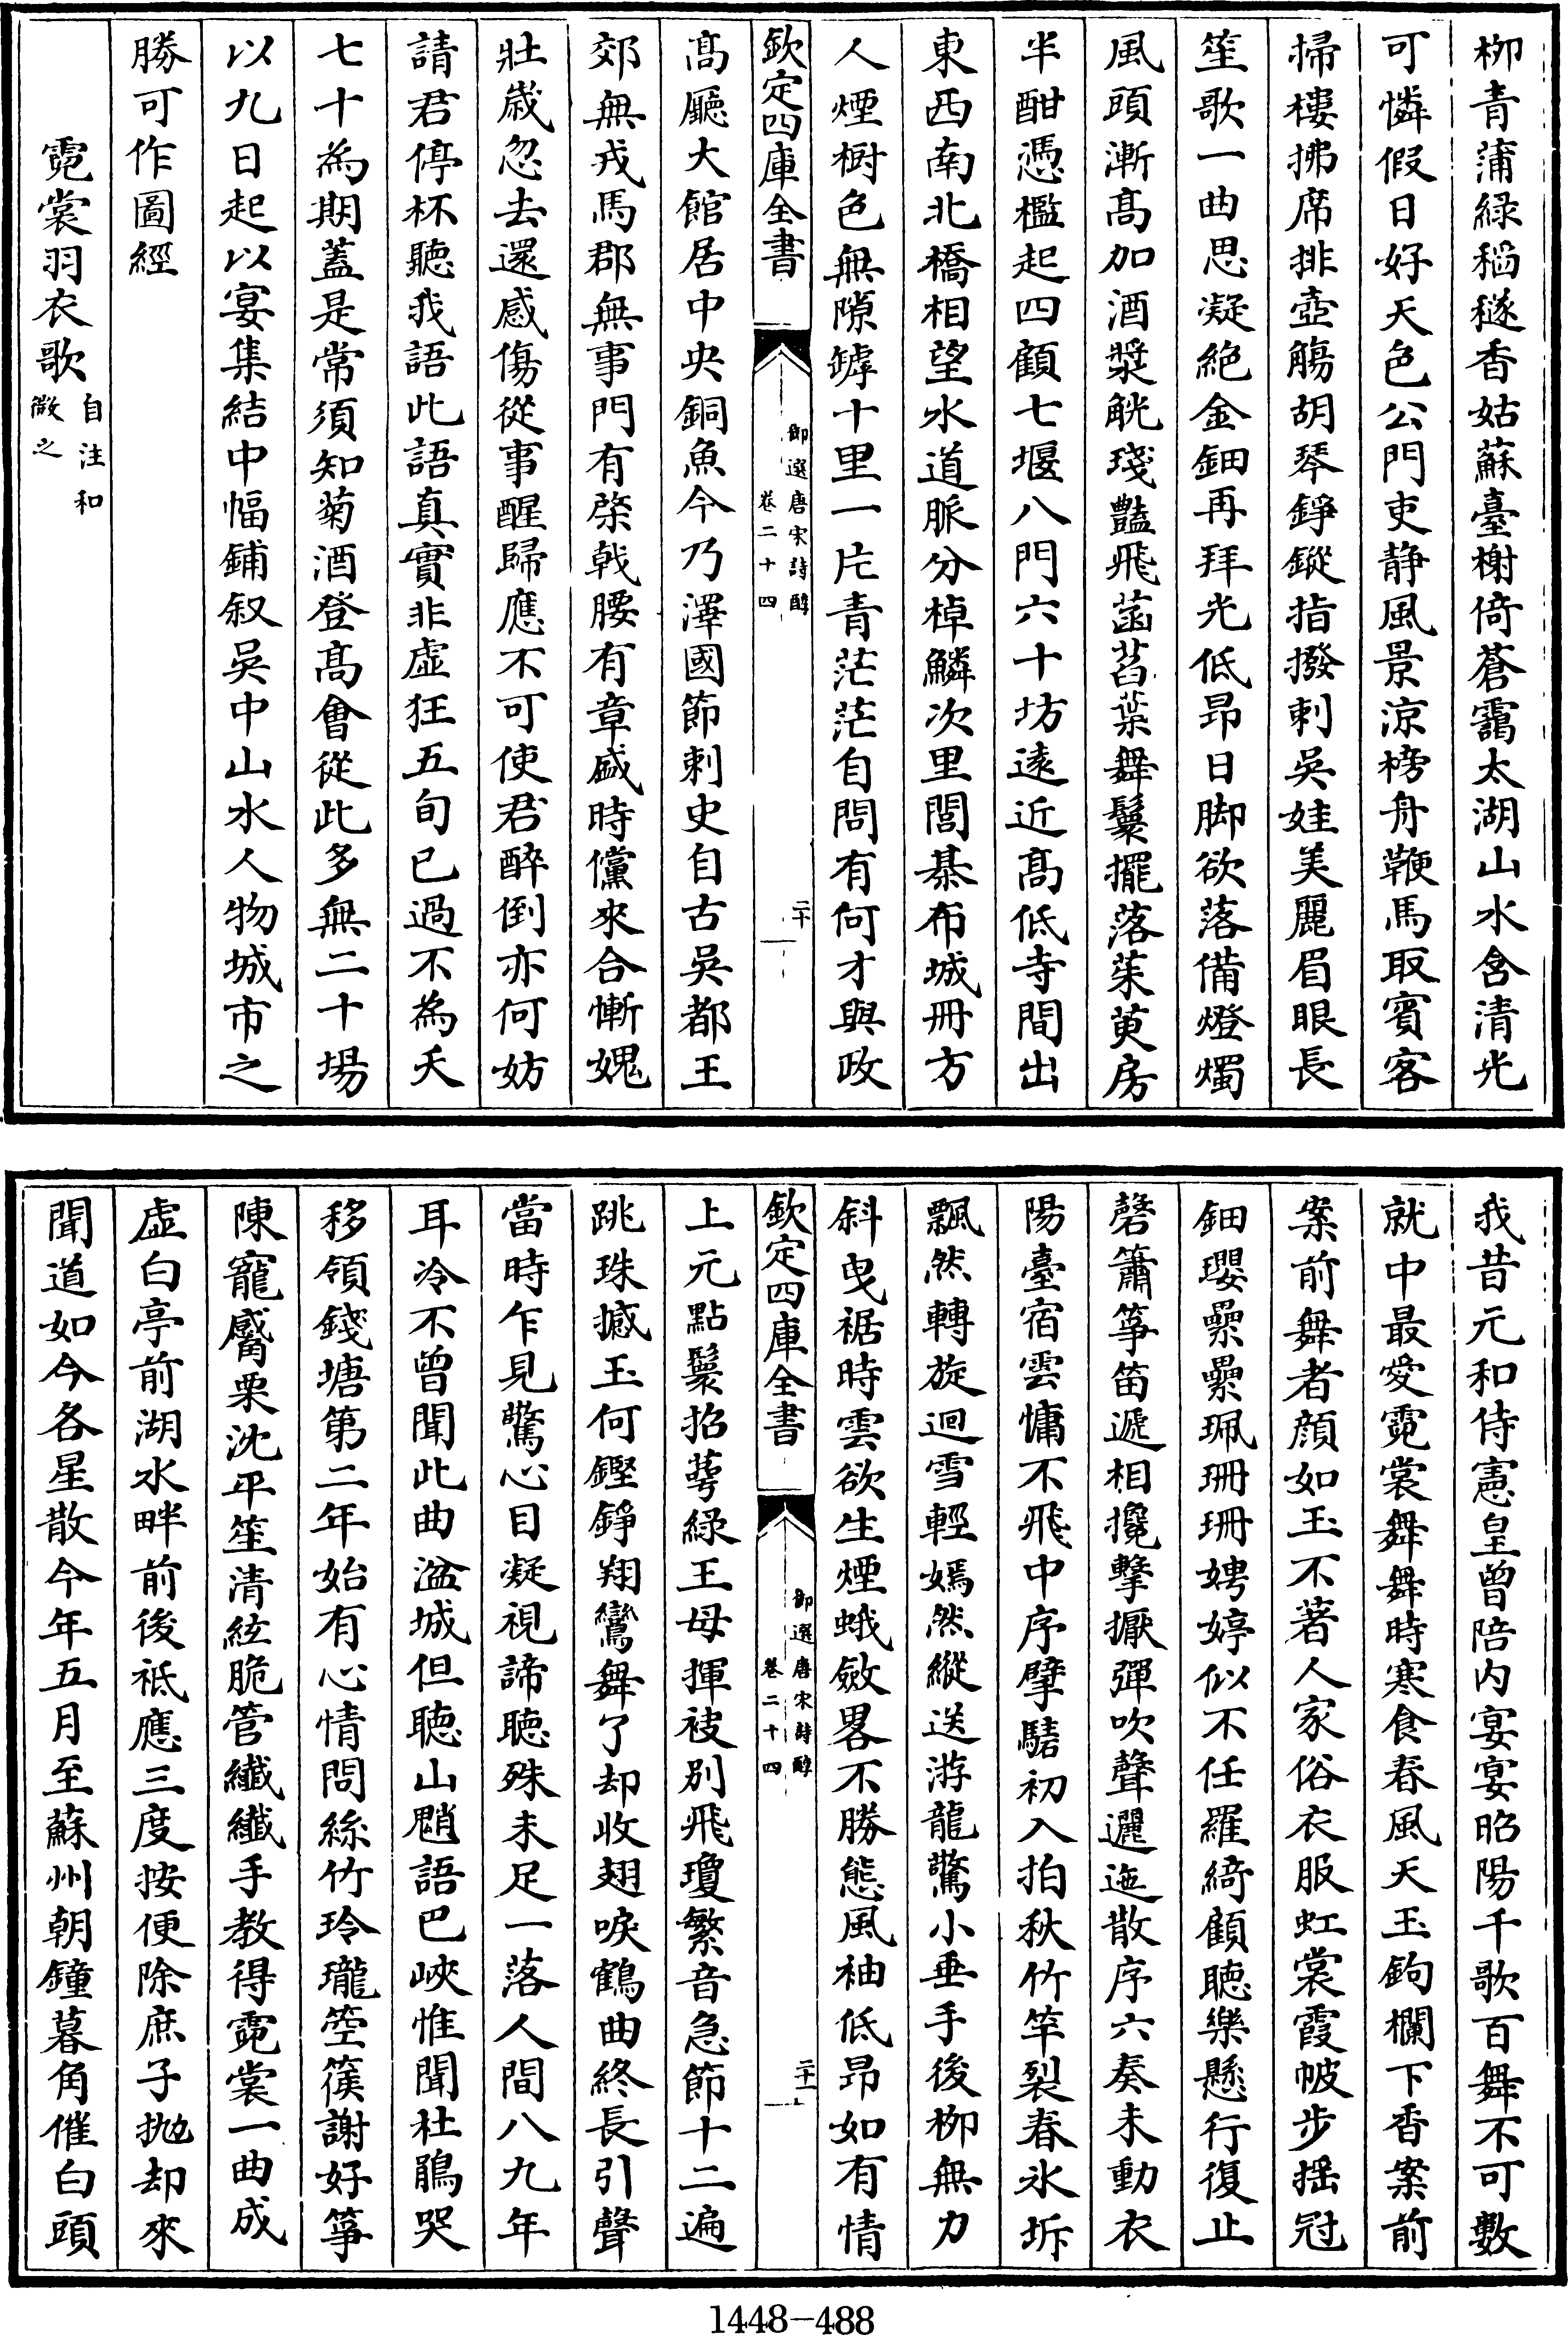 柳青蒲緑稻穟香姑蘇臺榭倚蒼靄太湖山水含清光
可憐假日好天色公門吏静風景涼榜舟鞭馬取賓客
掃樓拂席排壺觴胡琴錚鏦指撥刺吳娃美麗眉眼長
笙歌一曲思凝絶金鈿再拜光低昂日脚欲落備燈燭
風頭漸髙加酒漿觥琖豔飛菡萏葉舞鬟擺落茱萸房
半酣憑檻起四顧七堰八門六十坊逺近髙低寺間出
東西南北橋相望水道脈分棹鱗次里閭棊布城冊方
人煙樹色無隙罅十里一片青茫茫自問有何才與政
欽定四庫全書
御選唐宋詩醇
卷二十四
二十
髙廳大館居中央銅魚今乃澤國節刺史自古吳都王
郊無戎馬郡無事門有棨戟腰有章盛時儻來合慚媿
壯嵗忽去還感傷從事醒歸應不可使君醉倒亦何妨
請君停杯聽我語此語真實非虚狂五旬已過不為夭
七十為期蓋是常須知菊酒登髙㑹從此多無二十場
以九日起以宴集結中幅鋪叙吳中山水人物城市之
勝可作圖經
霓裳羽衣歌
自注和
微之
我昔元和侍憲皇曾陪内宴宴昭陽千歌百舞不可數
就中最愛霓裳舞舞時寒食春風天玉鉤欄下香案前
案前舞者顔如玉不著人家俗衣服虹裳霞帔步揺冠
鈿瓔纍纍珮珊珊娉婷似不任羅綺顧聴樂懸行復止
磬簫筝笛遞相攙擊擫彈吹聲邐迤散序六奏未動衣
陽臺宿雲慵不飛中序擘騞初入拍秋竹竿裂春氷坼
飄然轉旋迴雪輕嫣然縱送游龍驚小垂手後柳無力
斜曳裾時雲欲生煙蛾斂畧不勝態風袖低昂如有情
欽定四庫全書
御選唐宋詩醇
卷二十四
二十一
上元點鬟招萼綠王母揮袂别飛瓊繁音急節十二遍
跳珠撼玉何鏗錚翔鸞舞了却收翅唳鶴曲終長引聲
當時乍見驚心目凝視諦聴殊未足一落人間八九年
耳冷不曾聞此曲湓城但聴山魈語巴峽惟聞杜鵑哭
移領錢塘第二年始有心情問絲竹玲瓏箜篌謝好筝
陳寵觱栗沈平笙清絃脆管纖纖手教得霓裳一曲成
虚白亭前湖水畔前後祗應三度按便除庶子抛却來
聞道如今各星散今年五月至蘇州朝鐘暮角催白頭
1448-488